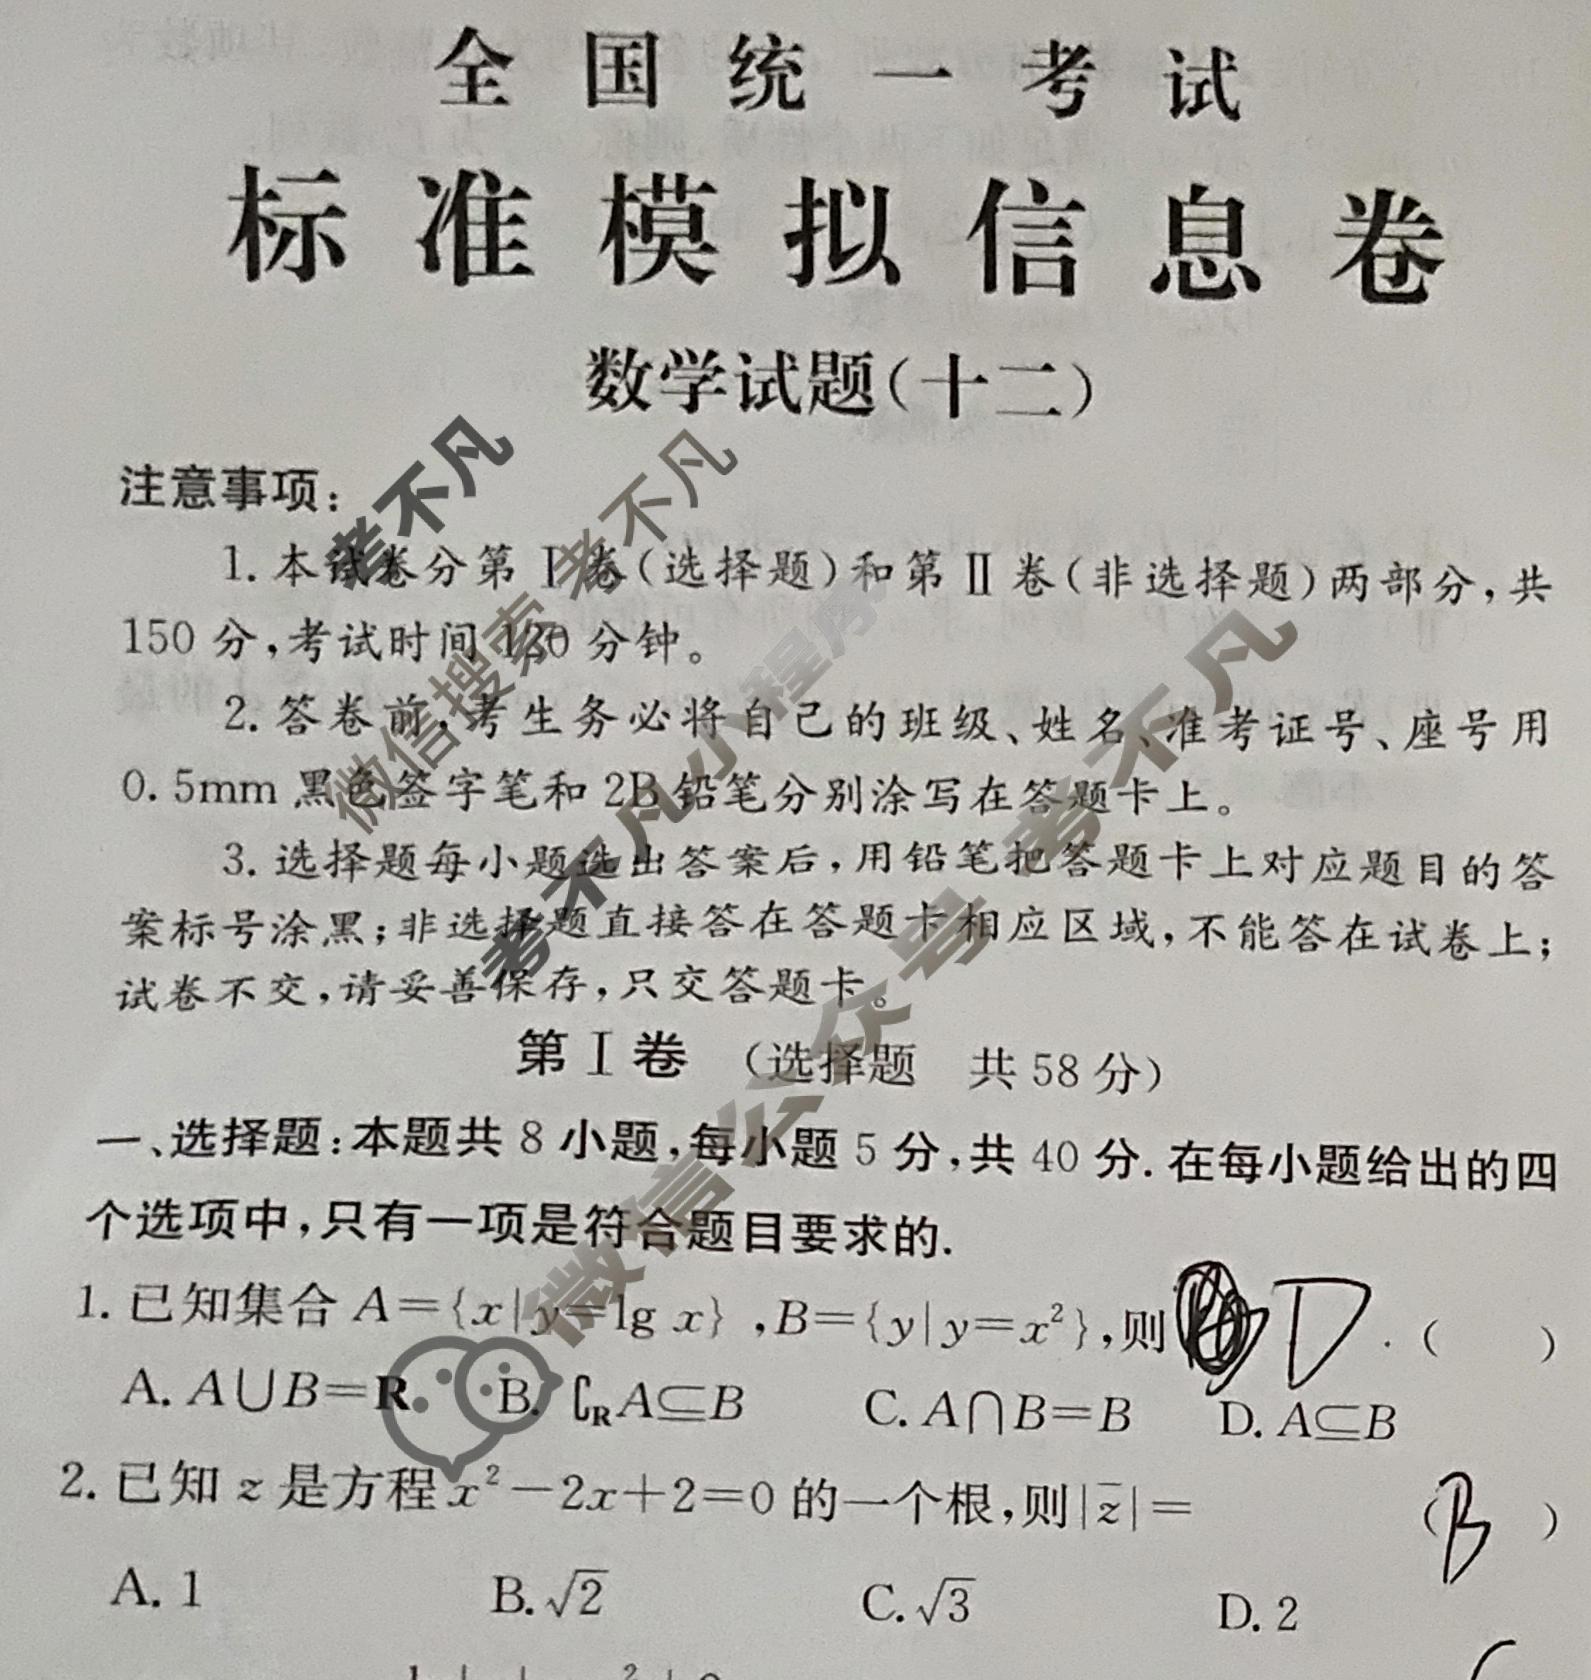 全国统一考试
标准模拟信息卷
数学试题(十二)
注意事项:
1.本试卷分第Ⅰ卷(选择题)和第Ⅱ卷(非选择题)两部分,共
150分,考试时间120分钟。
2.答卷前,考生务必将自己的班级、姓名、准考证号、座号用
0.5mm黑色签字笔和2B铅笔分别涂写在答题卡上。
3.选择题每小题选出答案后,用铅笔把答题卡上对应题目的答
案标号涂黑;非选择题直接答在答题卡相应区域,不能答在试卷上;
试卷不交,请妥善保存,只交答题卡。
第Ⅰ卷 (选择题 共58分)
一、选择题:本题共8小题,每小题5分,共40分.在每小题给出的四
个选项中,只有一项是符合题目要求的.
1.已知集合A={x|y=lg x},B={y|y=x²},则 D .( )
A. A∪B=R B. ∁RA⊆B C. A∩B=B D. A⊆B
2.已知z是方程x²-2x+2=0的一个根,则|z̅|= ( B )
A. 1 B. √2 C. √3 D. 2
考不凡
考不凡
微信搜索
考不凡小程序
微信公众号 考不凡